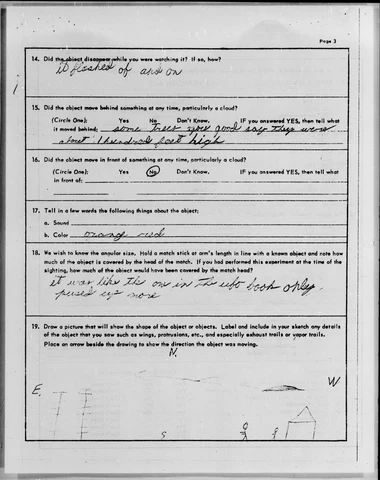 Page 3
14. Did the object disappear while you were watching it? If so, how?
it flashed of and on
15. Did the object move behind something at any time, particularly a cloud?
(Circle One): Yes No Don't Know. IF you answered YES, then tell what
it moved behind: some trees you good say they were
about 1 hundred feet high
16. Did the object move in front of something at any time, particularly a cloud?
(Circle One): Yes No Don't Know. IF you answered YES, then tell what
in front of:
17. Tell in a few words the following things about the object:
a. Sound
b. Color orange red
18. We wish to know the angular size. Hold a match stick at arm's length in line with a known object and note how
much of the object is covered by the head of the match. If you had performed this experiment at the time of the
sighting, how much of the object would have been covered by the match head?
it was like the on in the ufo book only
up more
19. Draw a picture that will show the shape of the object or objects. Label and include in your sketch any details
of the object that you saw such as wings, protrusions, etc., and especially exhaust trails or vapor trails.
Place an arrow beside the drawing to show the direction the object was moving.
N.
E. W
S